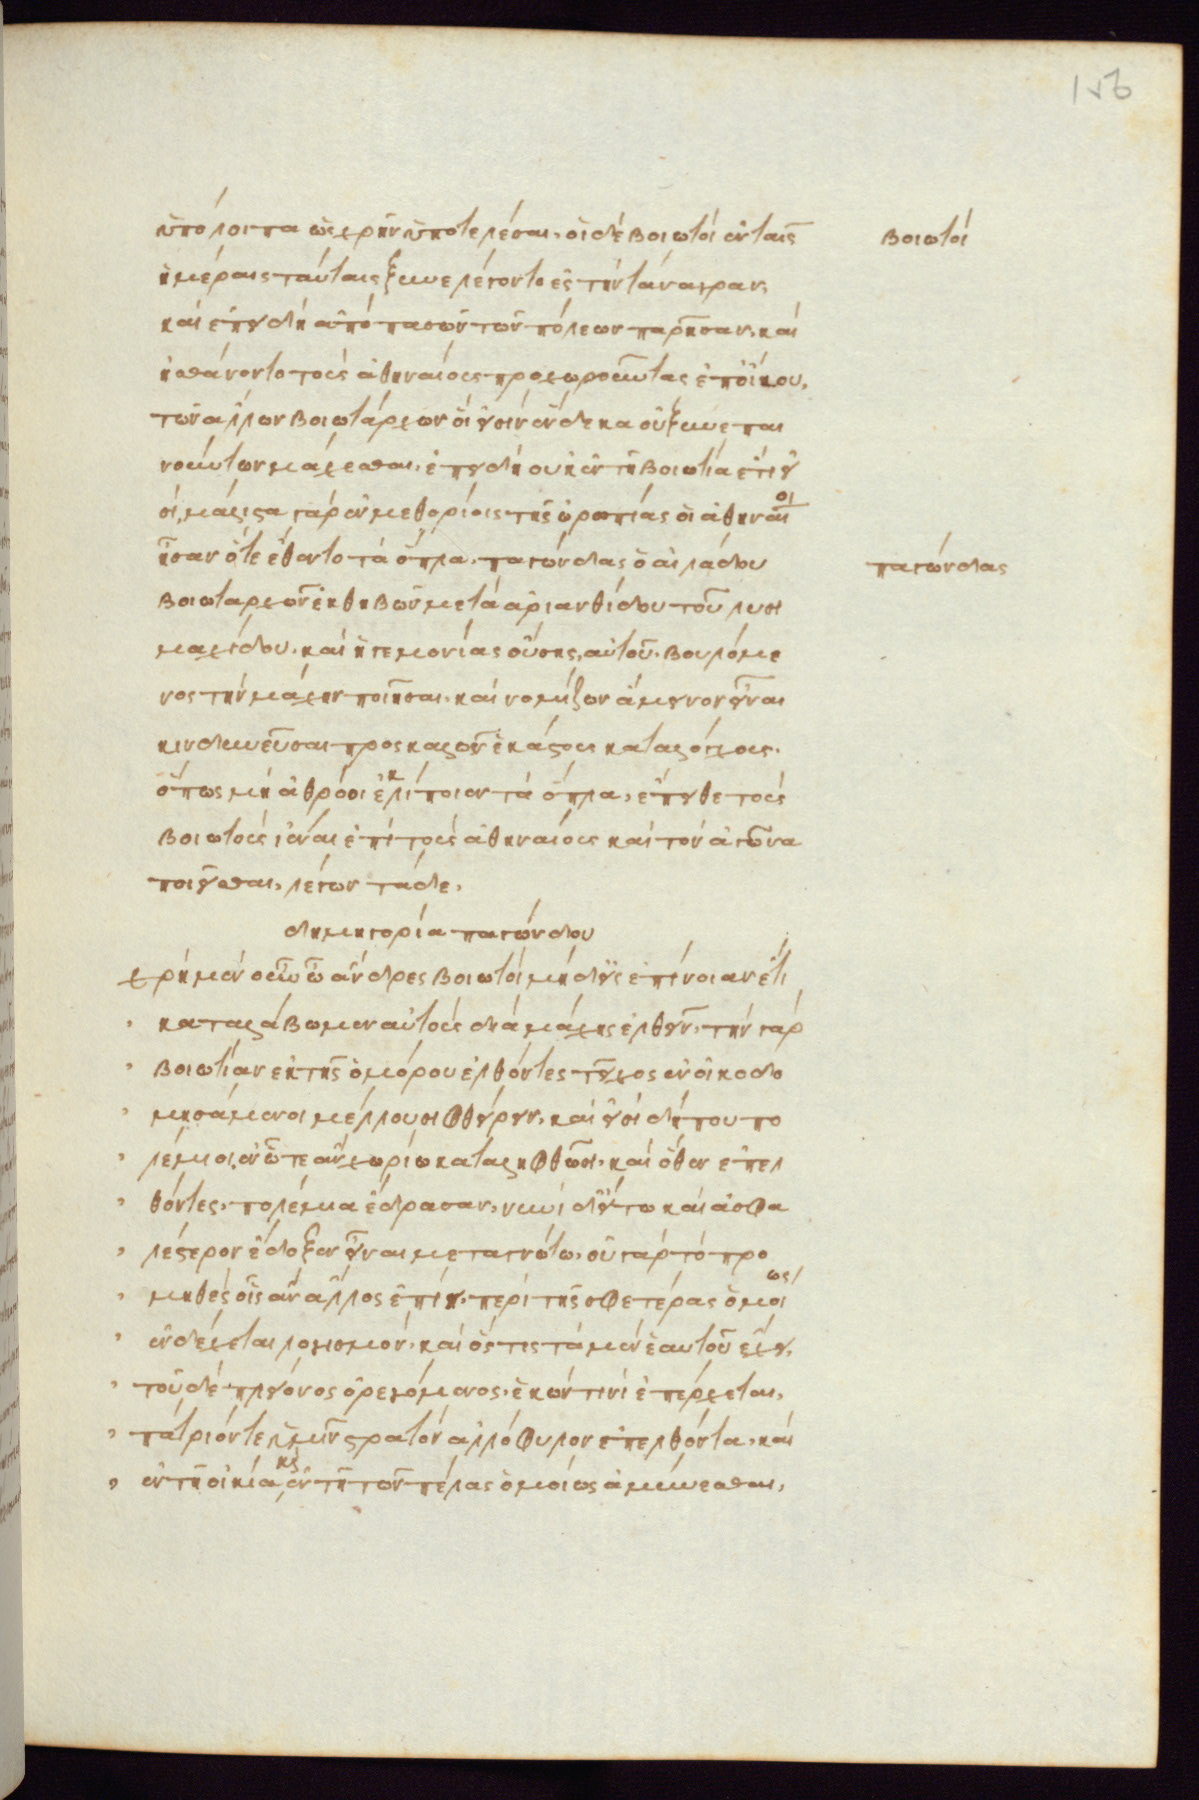 156
ὑπόλοιπα ὡς χρῆν ὑποτελέσαι. οἱ δὲ βοιωτοὶ ἐν ταῖς
βοιωτοί
ἡμέραις ταύταις ξυνελέγοντο ἐς τὴν τάναγραν,
καὶ ἐπειδὴ ἀπὸ πασῶν τῶν πόλεων παρῆσαν, καὶ
ἠσθάνοντο τοὺς ἀθηναίους προχωροῦντας ἐπ' οἴκου,
τῶν ἄλλων βοιωτάρχων οἵ εἰσιν ἕνδεκα οὐ ξυνεπαι
νούντων μάχεσθαι, ἐπειδὴ οὐκ ἐν τῇ βοιωτία ἔτι εἰ
σί, μάλιστα γὰρ ἐν μεθορίοις τῆς ὠρωπίας οἱ ἀθηναῖοι
ἦσαν ὅτε ἔθεντο τὰ ὅπλα. παγώνδας ὁ αἰλάδου
παγώνδας
βοιωταρχῶν ἐκ θηβῶν μετὰ ἀριανθίδου τοῦ λυσι
μαχίδου. καὶ ἡγεμονίας οὔσης, αὐτοῦ. βουλόμε
νος τὴν μάχην ποιῆσαι. καὶ νομίζων ἄμεινον εἶναι
κινδυνεῦσαι προσκαλῶν ἑκάστους κατὰ λόχους.
ὅπως μὴ ἀθρόοι ἐκλίποιεν τὰ ὅπλα, ἔπειθε τοὺς
βοιωτοὺς ἰέναι ἐπὶ τοὺς ἀθηναίους καὶ τὸν ἀγῶνα
ποιεῖσθαι, λέγων τάδε.
δημηγορία παγώνδου
χρὴ μὲν οὖν ὦ ἄνδρες βοιωτοὶ μὴ δ' εἰς ἐπίνοιαν ἔτι
καταλάβωμεν αὐτοὺς διὰ μάχης ἐλθεῖν. τὴν γὰρ
βοιωτίαν ἐκ τῆς ὁμόρου ἐλθόντες τεῖχος ἐνοικοδο
μησάμενοι μέλλουσι φθείρειν. καὶ εἰσὶ δήπου πο
λέμιοι, ἐν ὧ τε ἂν χωρίω καταληφθῶσι. καὶ ὅθεν ἐπελ
θόντες, πολέμια ἔδρασαν, νυνὶ δ' εἴ τω καὶ ἀσφα
λέστερον ἔδοξεν εἶναι μεταγνώτω. οὐ γὰρ τὸ προ
μηθές οἷς ἂν ἄλλος ἐπίη. περὶ τῆς σφετέρας ὁμοίως
ἐνδέχεται λογισμόν. καὶ ὅς τις τὰ μὲν ἑαυτοῦ ἔχει,
τοῦ δὲ πλείονος ὀρεγόμενος. ἑκών τινι ἐπέρχεται,
πάτριόν τε ὑμῖν στρατὸν ἀλλόφυλον ἐπελθόντα, καὶ
ἐν τῇ οἰκία καὶ ἐν τῇ τῶν πέλας ὁμοίως ἀμύνεσθαι,